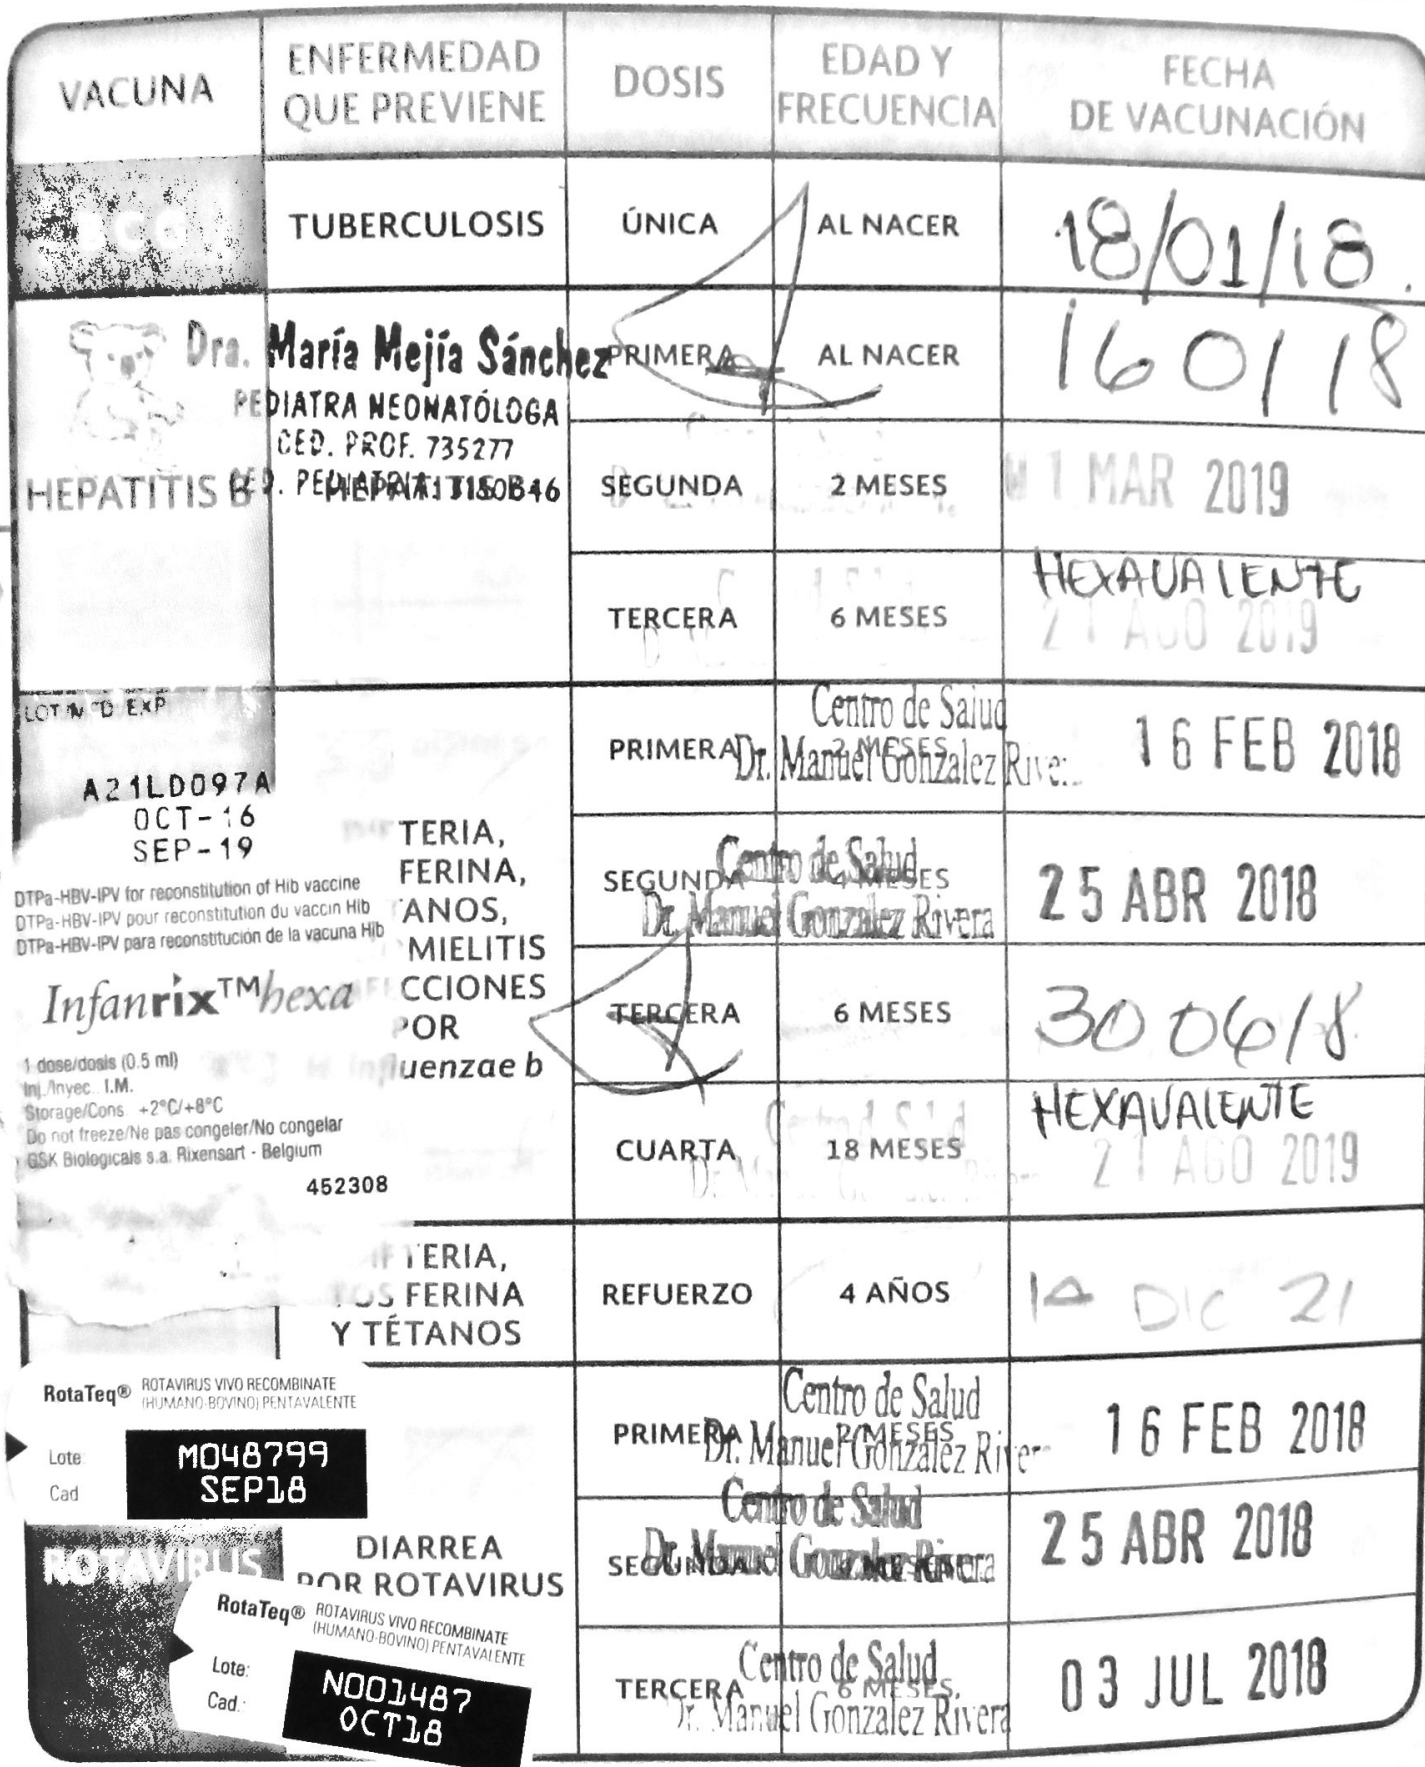 VACUNA
ENFERMEDAD
QUE PREVIENE
DOSIS
EDAD Y
FRECUENCIA
FECHA
DE VACUNACIÓN
BCG
TUBERCULOSIS
ÚNICA
AL NACER
18/01/18
HEPATITIS B
Dra. María Mejía Sánchez
PEDIATRA NEONATÓLOGA
CED. PROF. 735277
HEPATITIS B
PRIMERA
AL NACER
16 01 18
SEGUNDA
2 MESES
1 MAR 2019
TERCERA
6 MESES
HEXAVALENTE
21 AGO 2019
LOT
EXP
A21LD097A
OCT-16
SEP-19
DTPa-HBV-IPV for reconstitution of Hib vaccine
DTPa-HBV-IPV pour reconstitution du vaccin Hib
DTPa-HBV-IPV para reconstitución de la vacuna Hib
Infanrix™ hexa
1 dose/dosis (0.5 ml)
Inj./Inyec. I.M.
Storage/Cons. +2°C/+8°C
Do not freeze/Ne pas congeler/No congelar
GSK Biologicals s.a. Rixensart - Belgium
452308
TERIA,
FERINA,
ANOS,
MIELITIS
CCIONES
POR
influenzae b
PRIMERA
2 MESES
Centro de Salud
Dr. Manuel Gonzalez River
16 FEB 2018
SEGUNDA
4 MESES
Centro de Salud
Dr. Manuel Gonzalez Rivera
25 ABR 2018
TERCERA
6 MESES
30 06 18
CUARTA
18 MESES
HEXAVALENTE
21 AGO 2019
TERIA,
FERINA
Y TÉTANOS
REFUERZO
4 AÑOS
DIC 21
RotaTeq® ROTAVIRUS VIVO RECOMBINATE
(HUMANO-BOVINO) PENTAVALENTE
Lote:
M048799
Cad
SEP18
ROTAVIRUS
DIARREA
POR ROTAVIRUS
RotaTeq® ROTAVIRUS VIVO RECOMBINATE
(HUMANO-BOVINO) PENTAVALENTE
Lote:
N001487
Cad.:
OCT18
PRIMERA
2 MESES
Centro de Salud
Dr. Manuel Gonzalez River
16 FEB 2018
SEGUNDA
Centro de Salud
Dr. Manuel Gonzalez Rivera
25 ABR 2018
TERCERA
6 MESES
Centro de Salud
Dr. Manuel Gonzalez Rivera
03 JUL 2018